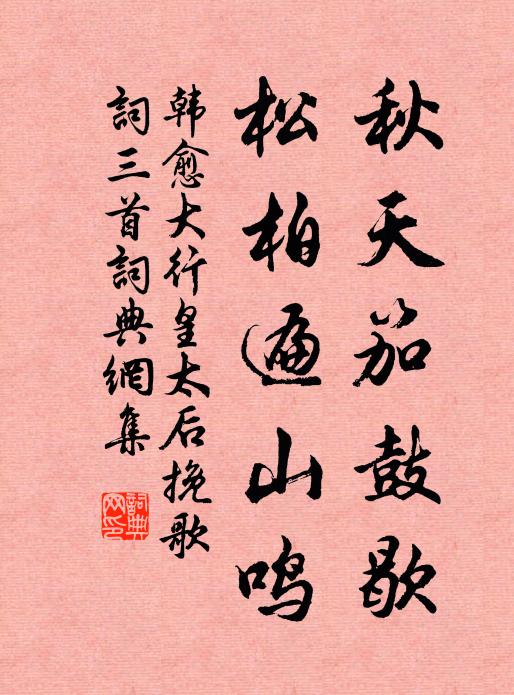 秋天笳鼓歇
松柏遍山鸣
韩愈大行皇太后挽歌
詞三首詞典網集
詞典網印